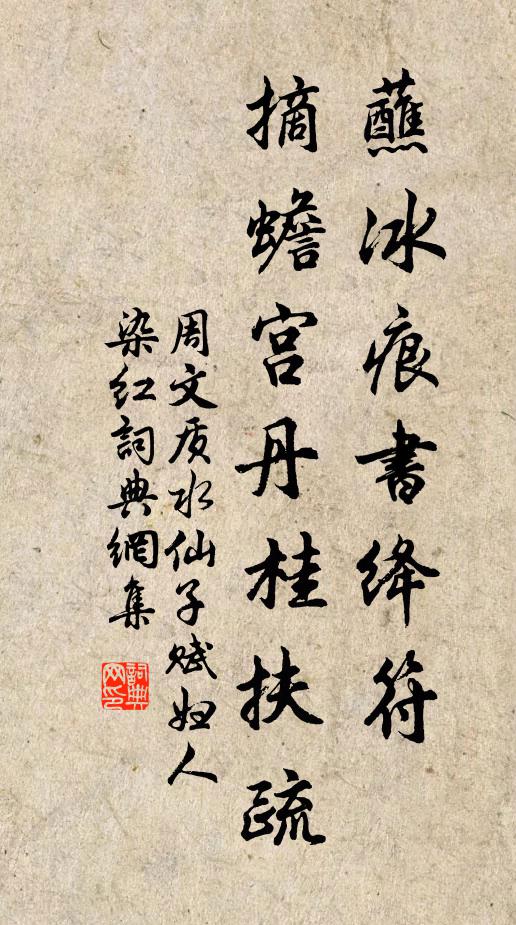 蘸冰痕書绛符
摘蟾宫丹桂扶疏
周文质水仙子赋妇人
染红詞典網集
詞典网印